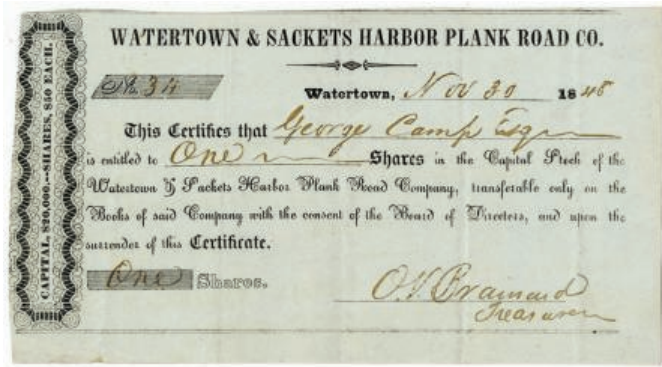 WATERTOWN & SACKETS HARBOR PLANK ROAD CO.
No. 34
Watertown, Nov 30 1848
This Certifies that George Camp Esqr
is entitled to One Shares in the Capital Stock of the
Watertown & Sackets Harbor Plank Road Company, transferable only on the
Books of said Company with the consent of the Board of Directors, and upon the
surrender of this Certificate.
One Shares.
O. V. Brainard
Treasurer
CAPITAL, $20,000.--SHARES, $50 EACH.